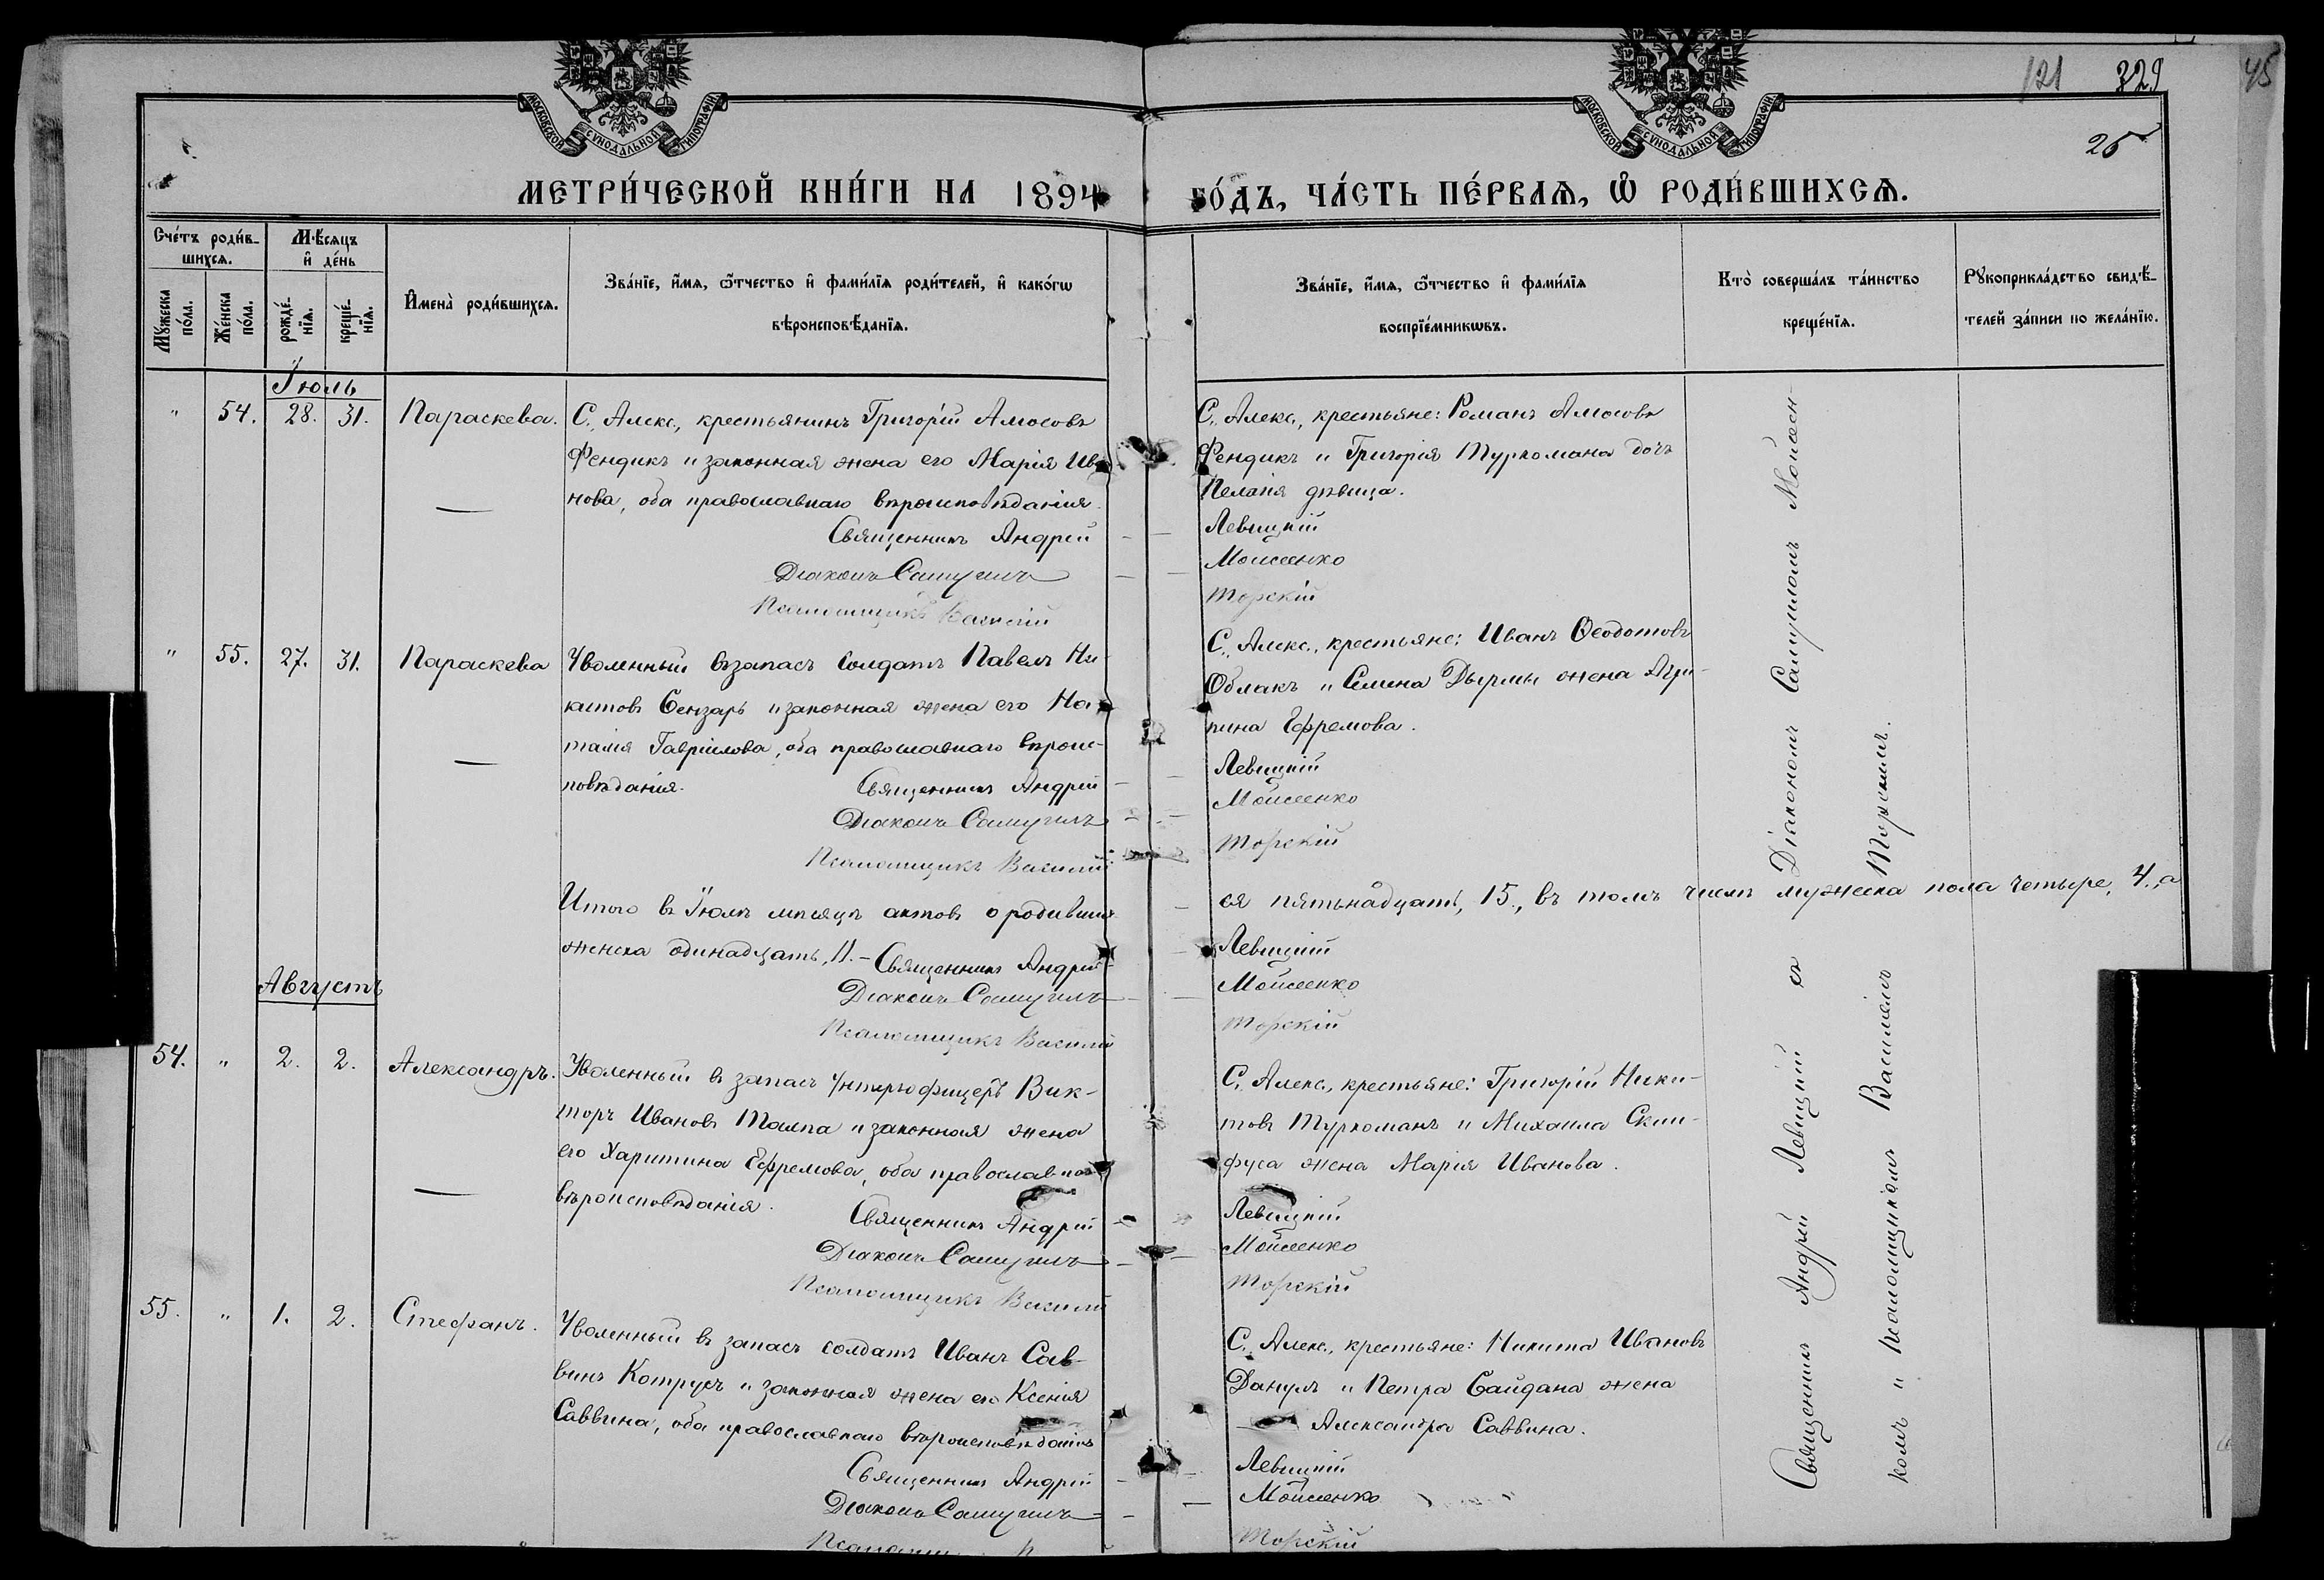 МОСКОВСКОЙ СѴНОДАЛЬНОЙ ТИПОГРАФІИ.
МОСКОВСКОЙ СѴНОДАЛЬНОЙ ТИПОГРАФІИ.
121 329
45
25
МЕТРИ́ЧЕСКОЙ КНИ́ГИ НА 1894 ГО́ДЪ, ЧА́СТЬ ПЕ́РВАѦ, Ѽ РОДИ́ВШИХСѦ.
Сче́тъ роди́в-
шихсѧ.
Мꙋ́жеска
по́ла.
Же́нска
по́ла.
Мѣ́сяцъ
и҆ де́нь
рожде́-
нїѧ.
креще́-
нїѧ.
И҆мена̀ роди́вшихсѧ.
Зва́нїе, и҆́мѧ, ѻ҆́тчество и҆ фами́лїѧ роди́телей, и҆ како́гѡ
вѣроисповѣ́данїѧ.
Зва́нїе, и҆́мѧ, ѻ҆́тчество и҆ фами́лїѧ
воспрїе́мникѡвъ.
Кто̀ соверша́лъ та́инство
креще́нїѧ.
Рꙋкоприкла́дство свидѣ́-
телей за́писи по жела́нїю.
Іюль
" 54. 28. 31. Параскева.
С. Алекс., крестьянинъ Григорій Амосовъ
Фендикъ и законная жена его Марія Ива
нова, оба православнаго вѣроисповѣданія.
Священникъ Андрей
Діаконъ Самуилъ
Псаломщикъ Василій
С. Алекс., крестьяне: Романъ Амосовъ
Фендикъ и Григорія Туркомана дочь
Пелагія дѣвица.
Левицкій
Моисеенко
Торскій
" 55. 27. 31. Параскева
Уволенный въ запасъ солдатъ Павелъ Ни-
китовъ Бензарь и законная жена его На-
талія Гавріилова, оба православнаго вѣроис-
повѣданія.
Священникъ Андрей
Діаконъ Самуилъ
Псаломщикъ Василій
С. Алекс., крестьяне: Иванъ Ѳеодотовъ
Облакъ и Семена Дырмы жена Агри-
пина Ефремова.
Левицкій
Моисеенко
Торскій
Итого въ Іюлѣ мѣсяцѣ актовъ о родивших
ся пятьнадцать, 15., въ томъ числѣ мужеска пола четыре, 4., а
женска одинадцать, 11. –
Священникъ Андрей
Діаконъ Самуилъ
Псаломщикъ Василій
Левицкій
Моисеенко
Торскій
Августъ
54. " 2. 2. Александръ.
Уволенный въ запасъ унтеръ офицеръ Вик-
торъ Ивановъ Талпа и законная жена
его Харитина Ефремова, оба православнаго
вѣроисповѣданія.
Священникъ Андрей
Діаконъ Самуилъ
Псаломщикъ Василій
С. Алекс., крестьяне: Григорій Ники-
товъ Туркоманъ и Михаила Скин-
фуса жена Марія Иванова.
Левицкій
Моисеенко
Торскій
55. " 1. 2. Стефанъ.
Уволенный въ запасъ солдатъ Иванъ Сав-
винъ Котрусъ и законная жена его Ксенія
Саввина, оба православнаго вѣроисповѣданія
Священникъ Андрей
Діаконъ Самуилъ
С. Алекс., крестьяне: Никита Ивановъ
Данулъ и Петра Сайдана жена
Александра Саввина.
Левицкій
Моисеенко
Торскій
Священникъ Андрей Левицкій съ Діакономъ Самуиломъ Моисеен-
комъ и Псаломщикомъ Василіемъ Торскимъ.